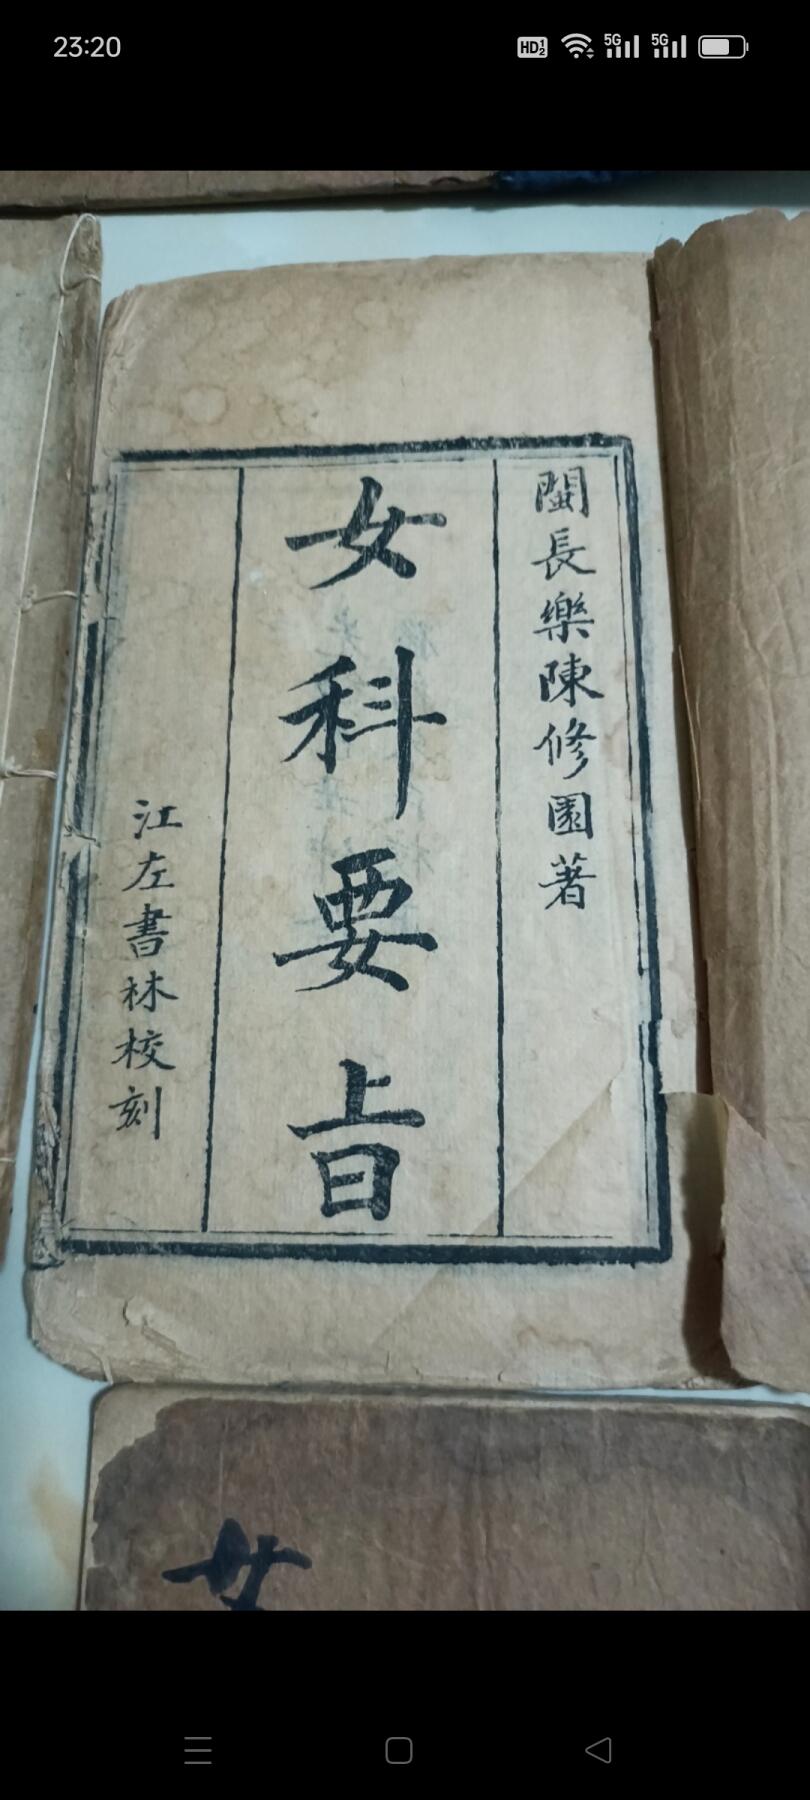 23:20
HD 1 2 5G 5G
閩長樂陳修園著
女科要旨
江左書林校刻
女